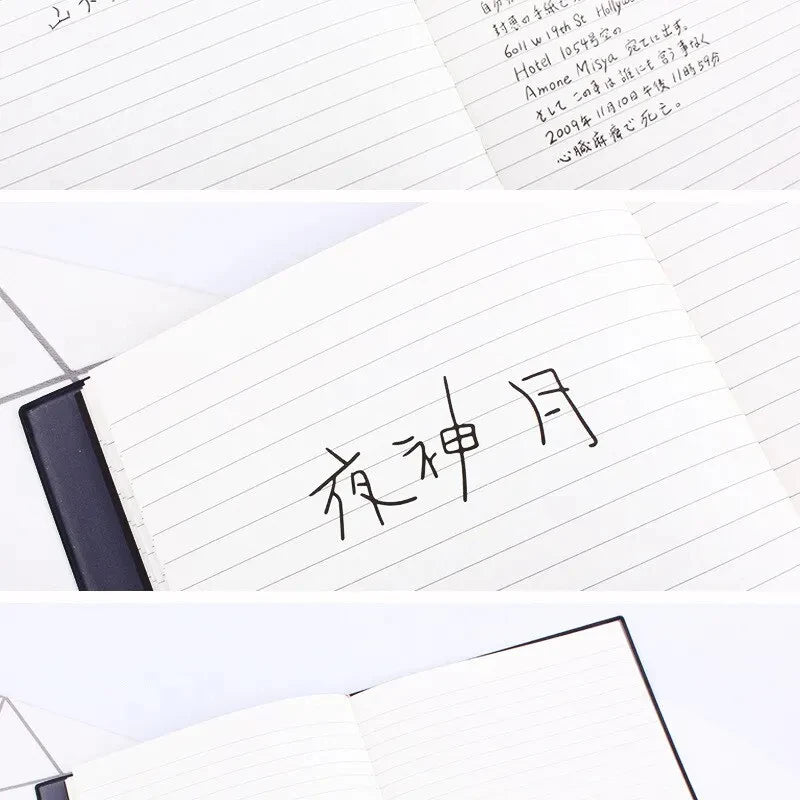 封悪の手紙で
6011 W 19th St Hollyw
Hotel 1054号室の
Amone Misya 宛てに出す。
そして この事は誰にも言う事なく
2009年11月10日午後11時59分
心臓麻痺で死亡。
夜神月